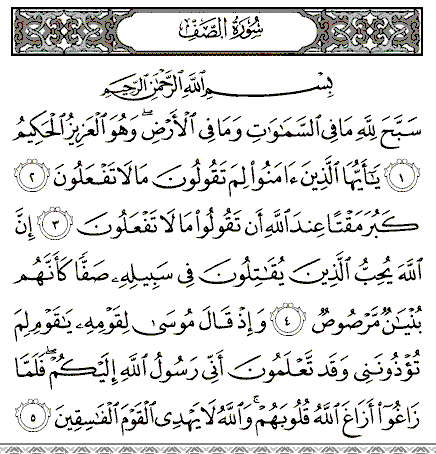 سُورَةُ الصَّفِّ
بِسْمِ اللَّهِ الرَّحْمَٰنِ الرَّحِيمِ
سَبَّحَ لِلَّهِ مَا فِى السَّمَٰوَٰتِ وَمَا فِى الْأَرْضِ ۖ وَهُوَ الْعَزِيزُ الْحَكِيمُ
١ يَٰٓأَيُّهَا الَّذِينَ ءَامَنُوا۟ لِمَ تَقُولُونَ مَا لَا تَفْعَلُونَ ٢
كَبُرَ مَقْتًا عِندَ اللَّهِ أَن تَقُولُوا۟ مَا لَا تَفْعَلُونَ ٣ إِنَّ
اللَّهَ يُحِبُّ الَّذِينَ يُقَٰتِلُونَ فِى سَبِيلِهِۦ صَفًّا كَأَنَّهُم
بُنْيَٰنٌ مَّرْصُوصٌ ٤ وَإِذْ قَالَ مُوسَىٰ لِقَوْمِهِۦ يَٰقَوْمِ لِمَ
تُؤْذُونَنِى وَقَد تَّعْلَمُونَ أَنِّى رَسُولُ اللَّهِ إِلَيْكُمْ ۖ فَلَمَّا
زَاغُوٓا۟ أَزَاغَ اللَّهُ قُلُوبَهُمْ ۚ وَاللَّهُ لَا يَهْدِى الْقَوْمَ الْفَٰسِقِينَ ٥